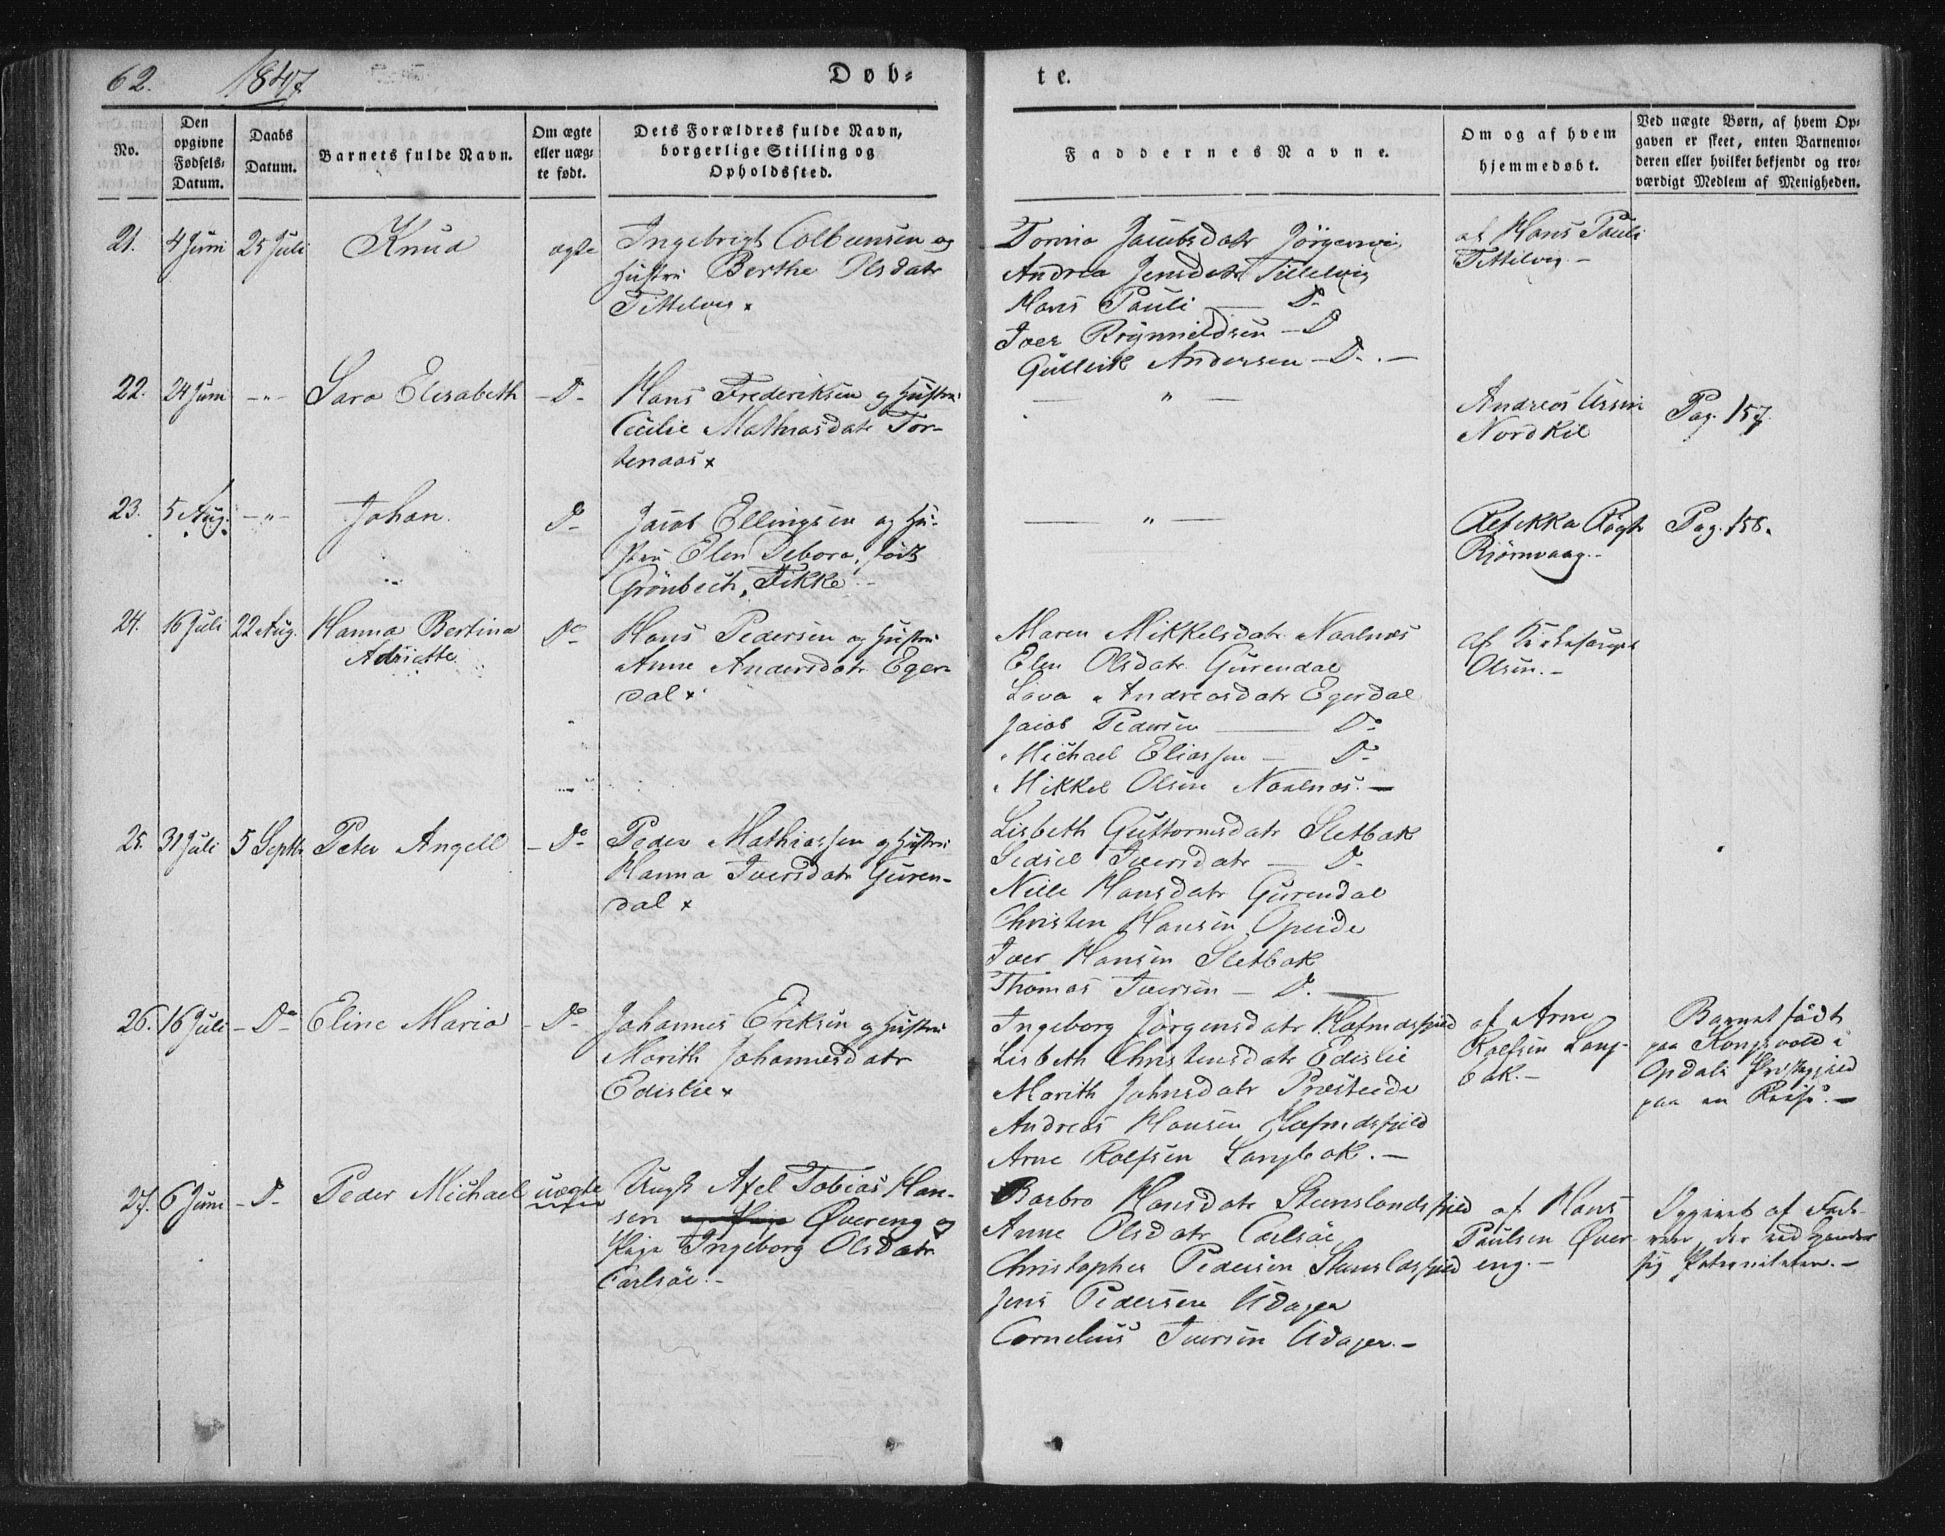 62. 1847 Døb-
te.
No.
Den opgivne Fødsels-Datum.
Daabs Datum.
Barnets fulde Navn.
Om ægte eller uæg-te født.
Dets Forældres fulde Navn, borgerlige Stilling og Opholdssted.
Faddernes Navne.
Om og af hvem hjemmedøbt.
Ved uægte Børn, af hvem Op-
gaven er skeet, enten Barnemo-
deren eller hvilket bekjendt og tro-
værdigt Medlem af Menigheden.
21. 4 Juni 25 Juli Knud ægte
Ingebrigt Colbensen og
Hustru Berthe Olsdatr
Tittelvig x
Jacobsdatr
Andrea Jensdatr Tittelvig
Hans Pauli — Do
Iver Brynnildsen — Do
Gullik Andersen — Do. —
af Hans Pauli
Tittelvig —
22. 24 Juni -"- Sara Elisabeth - Do -
Hans Frederiksen og Hustru
Cecilie Mathiasdatr Tor-
tenaas x
— " —
Andreas Ursin
Nordkil
Pag. 157.
23. 5 Aug. -"- Johan. Do
Jacob Ellingsen og Hu-
stru Elen Debora, født
Grönbech, Fikke. -
— " —
Refikka Røgh
Bjørnvaag. -
Pag. 158.
24. 16 Juli 22 Aug. Hanna Bertina
Adriatte
Do
Hans Pedersen og Hustru
Anne Andersdatr Eger-
dal x
Maren Mikkelsdatr Naalnæs
Elen Olsdatr Gurendal
Lava Andreasdatr Egerdal
Jacob Pedersen — Do
Michael Eliassen — Do
Mikkel Olsen Naalnæs. —
af Kirkesanger
Olsen. -
25. 31 Juli 5 Septb. Peter Angell - Do
Peder Mathiassen og Hustru
Hanna Iversdatr Guren-
dal x
Lisbeth Guttormsdatr Sletbak
Sidsel Iversdatr — Do
Nille Hansdatr Gurendal
Christen Hansen Opeide
Iver Hansen Sletbak
Thomas Iversen — Do. —
26. 16 Juli - Do Eline Maria - Do -
Johannes Eriksen og Hustru
Marith Johannesdatr
Edislie x
Ingeborg Jørgensdatr
Lisbeth Christensdatr Edislie
Marith Johnsdatr Præsteide
Andreas Hansen
Arne Rolfsen Langbak. —
af Arne
Rolfsen Lang-
bak. -
Barnet født
paa Kongsvold i
Opdals Præstegjeld
paa en Reise. —
27. 6 Juni - Do - Peder Michael uægte
Ungk Axel Tobias Han-
sen Øvereng og
Pige Ingeborg Olsdatr
Carlsöe. -
Barbro Hansdatr Stenslandsfjeld
Anne Olsdatr Carlsöe
Christopher Pedersen Stenslandsfjeld
Jens Pedersen Udager
Cornelius Iversen Udager. -
af Hans
Paulsen Øver
eng. -
Opgivet af Fade-
ren, der vedkjender
sig Paterniteten. -